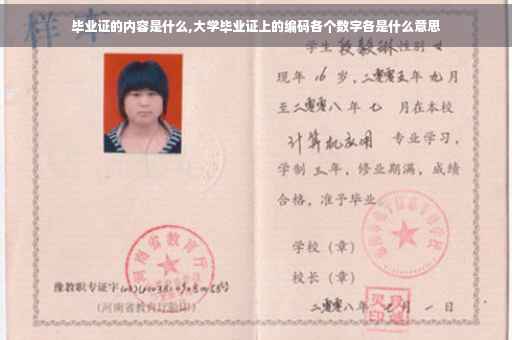 毕业证的内容是什么,大学毕业证上的编码各个数字各是什么意思
学生 性别 女
现年 16 岁,二零零五年 九月
至二零零八年 七 月在本校
计算机应用 专业学习,
学制 三年,修业期满,成绩
合格,准予毕业
学校(章)
校长(章)
二零零八年 七月 一日
河南省教育厅
豫教职专证字
(河南省教育厅验印)